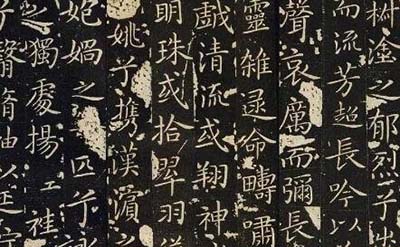 椒塗之郁烈
而流芳超長吟以
聲哀厲而彌長
靈雜遝命疇嘯
戲清流或翔神
明珠或拾翠羽
兮攜漢濱之
媧之匹兮
之獨處揚袿
兮翳脩袖以延